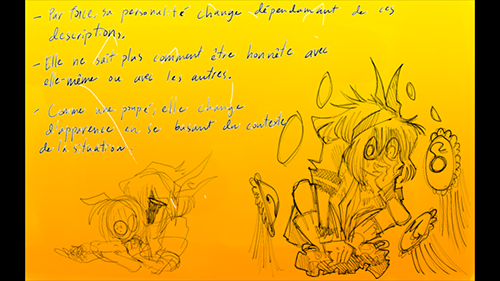 - Par force, sa personalité change dépendamment de ces
descriptions.
- Elle ne sait plus comment être honnête avec
elle-même ou avec les autres.
- Comme une poupé, elle change
d'apparence en se basant du contexte
de la situation.